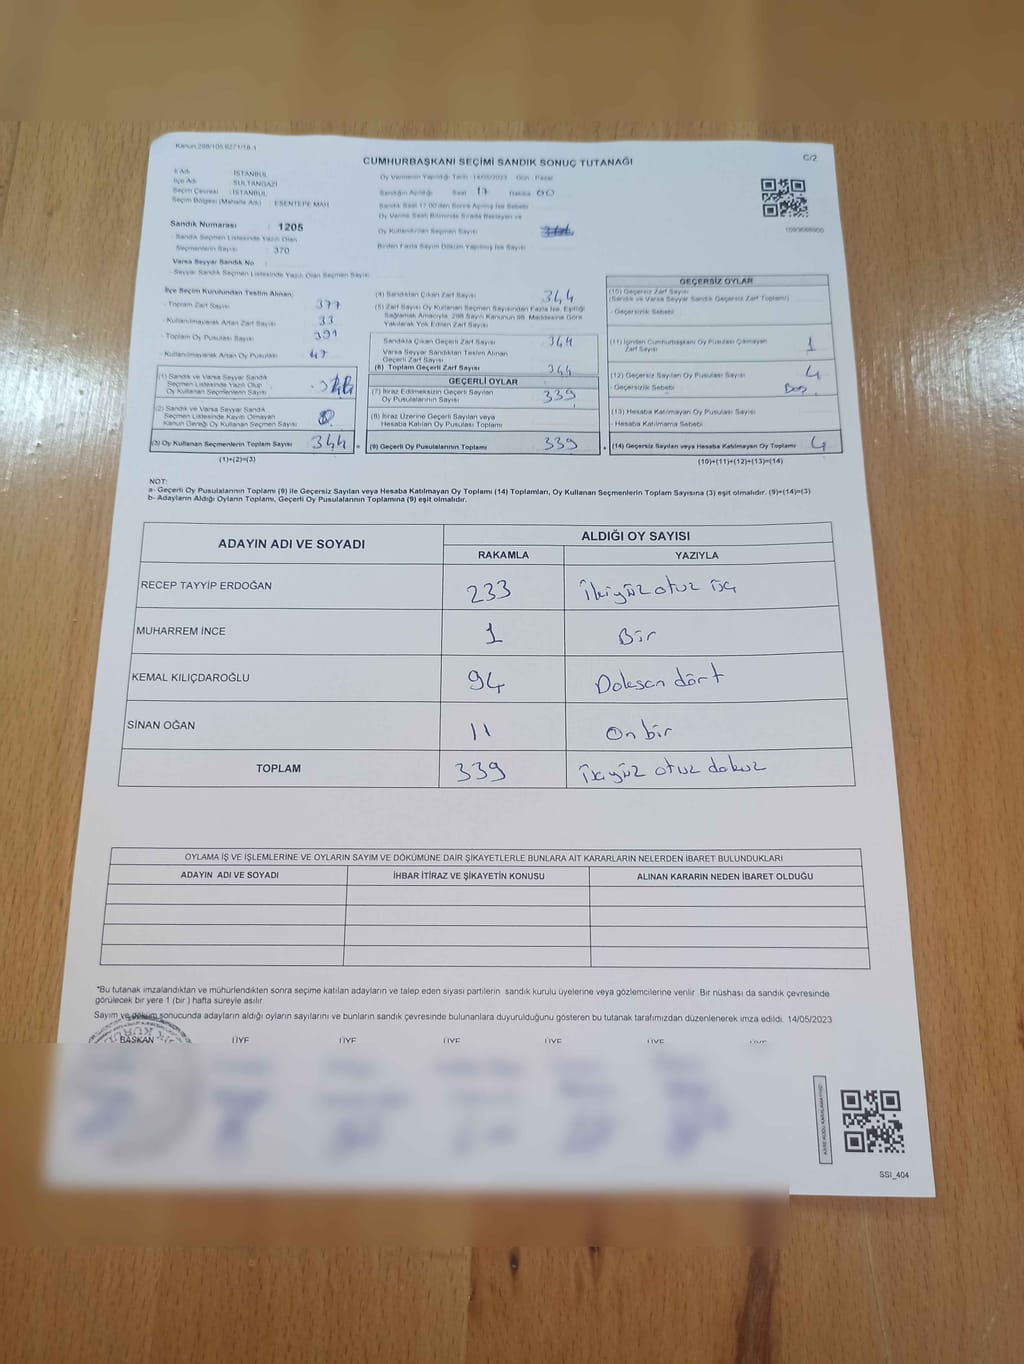 Kanun:298/105,6271/18-1
CUMHURBAŞKANI SEÇİMİ SANDIK SONUÇ TUTANAĞI
C/2
İl Adı : İSTANBUL
İlçe Adı : SULTANGAZİ
Seçim Çevresi : İSTANBUL
Seçim Bölgesi (Mahalle Adı) : ESENTEPE MAH
Sandık Numarası : 1205
- Sandık Seçmen Listesinde Yazılı Olan
Seçmenlerin Sayısı : 370
Varsa Seyyar Sandık No
- Seyyar Sandık Seçmen Listesinde Yazılı Olan Seçmen Sayısı
Oy Vermenin Yapıldığı Tarih : 14/05/2023 Gün : Pazar
Sandığın Açıldığı Saat : 17 Dakika 00
Sandık Saat 17.00'den Sonra Açılmış İse Sebebi
Oy Verme Saati Bitiminde Sırada Bekleyen ve
Oy Kullandırılan Seçmen Sayısı
Birden Fazla Sayım Döküm Yapılmış İse Sayısı
1093688900
İlçe Seçim Kurulundan Teslim Alınan:
- Toplam Zarf Sayısı 377
- Kullanılmayarak Artan Zarf Sayısı 33
- Toplam Oy Pusulası Sayısı 391
- Kullanılmayarak Artan Oy Pusulası 47
(1) Sandık ve Varsa Seyyar Sandık
Seçmen Listesinde Yazılı Olup
Oy Kullanan Seçmenlerin Sayısı
(2) Sandık ve Varsa Seyyar Sandık
Seçmen Listesinde Kayıtlı Olmayan
Kanun Gereği Oy Kullanan Seçmen Sayısı
(3) Oy Kullanan Seçmenlerin Toplam Sayısı 344
(1)+(2)=(3)
(4) Sandıktan Çıkan Zarf Sayısı 344
(5) Zarf Sayısı Oy Kullanan Seçmen Sayısından Fazla ise, Eşitliği
Sağlamak Amacıyla, 298 Sayılı Kanunun 98. Maddesine Göre
Yakılarak Yok Edilen Zarf Sayısı
Sandıkta Çıkan Geçerli Zarf Sayısı 344
Varsa Seyyar Sandıktan Teslim Alınan
Geçerli Zarf Sayısı
(6) Toplam Geçerli Zarf Sayısı 344
GEÇERLİ OYLAR
(7) İtiraz Edilmeksizin Geçerli Sayılan
Oy Pusulalarının Sayısı 339
(8) İtiraz Üzerine Geçerli Sayılan veya
Hesaba Katılan Oy Pusulası Toplamı
= (9) Geçerli Oy Pusulalarının Toplamı 339
GEÇERSİZ OYLAR
(10) Geçersiz Zarf Sayısı
(Sandık ve Varsa Seyyar Sandık Geçersiz Zarf Toplamı)
- Geçersizlik Sebebi
(11) İçinden Cumhurbaşkanı Oy Pusulası Çıkmayan
Zarf Sayısı 1
(12) Geçersiz Sayılan Oy Pusulası Sayısı 4
- Geçersizlik Sebebi
(13) Hesaba Katılmayan Oy Pusulası Sayısı
- Hesaba Katılmama Sebebi
+ (14) Geçersiz Sayılan veya Hesaba Katılmayan Oy Toplamı 4
(10)+(11)+(12)+(13)=(14)
NOT:
a- Geçerli Oy Pusulalarının Toplamı (9) ile Geçersiz Sayılan veya Hesaba Katılmayan Oy Toplamı (14) Toplamları, Oy Kullanan Seçmenlerin Toplam Sayısına (3) eşit olmalıdır. (9)+(14)=(3)
b- Adayların Aldığı Oyların Toplamı, Geçerli Oy Pusulalarının Toplamına (9) eşit olmalıdır.
ADAYIN ADI VE SOYADI
ALDIĞI OY SAYISI
RAKAMLA YAZIYLA
RECEP TAYYİP ERDOĞAN 233 İkiyüz otuz üç
MUHARREM İNCE 1 Bir
KEMAL KILIÇDAROĞLU 94 Doksan dört
SİNAN OĞAN 11 On bir
TOPLAM 339 İkiyüz otuz dokuz
OYLAMA İŞ VE İŞLEMLERİNE VE OYLARIN SAYIM VE DÖKÜMÜNE DAİR ŞİKAYETLERLE BUNLARA AİT KARARLARIN NELERDEN İBARET BULUNDUKLARI
ADAYIN ADI VE SOYADI İHBAR İTİRAZ VE ŞİKAYETİN KONUSU ALINAN KARARIN NEDEN İBARET OLDUĞU
*Bu tutanak imzalandıktan ve mühürlendikten sonra seçime katılan adayların ve talep eden siyasi partilerin sandık kurulu üyelerine veya gözlemcilerine verilir. Bir nüshası da sandık çevresinde
görülecek bir yere 1 (bir) hafta süreyle asılır.
Sayım ve döküm sonucunda adayların aldığı oyların sayılarını ve bunların sandık çevresinde bulunanlara duyurulduğunu gösteren bu tutanak tarafımızdan düzenlenerek imza edildi. 14/05/2023
BAŞKAN ÜYE ÜYE ÜYE ÜYE ÜYE ÜYE
SSI_404